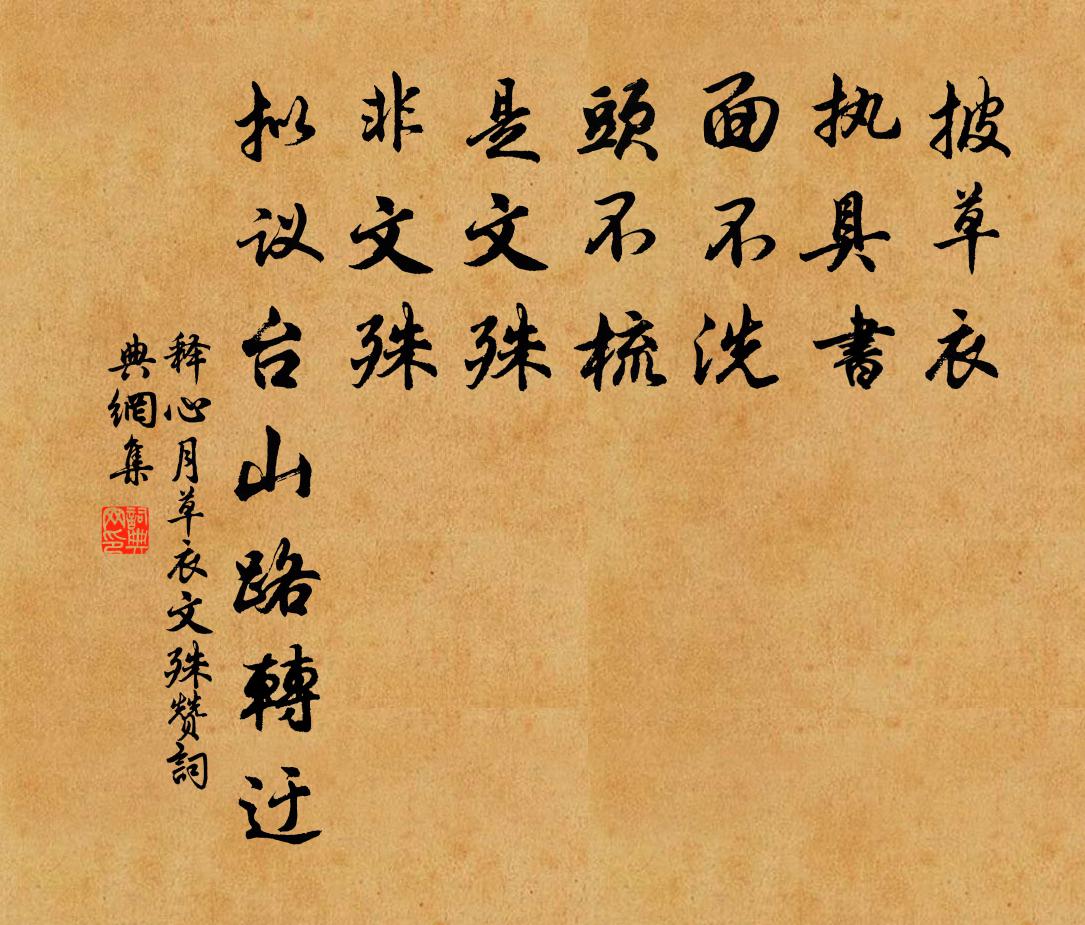 披草衣
执具書
面不洗
頭不梳
是文殊
非文殊
拟议台山路轉迂
释心月草衣文殊赞詞
典網集
詞典網印